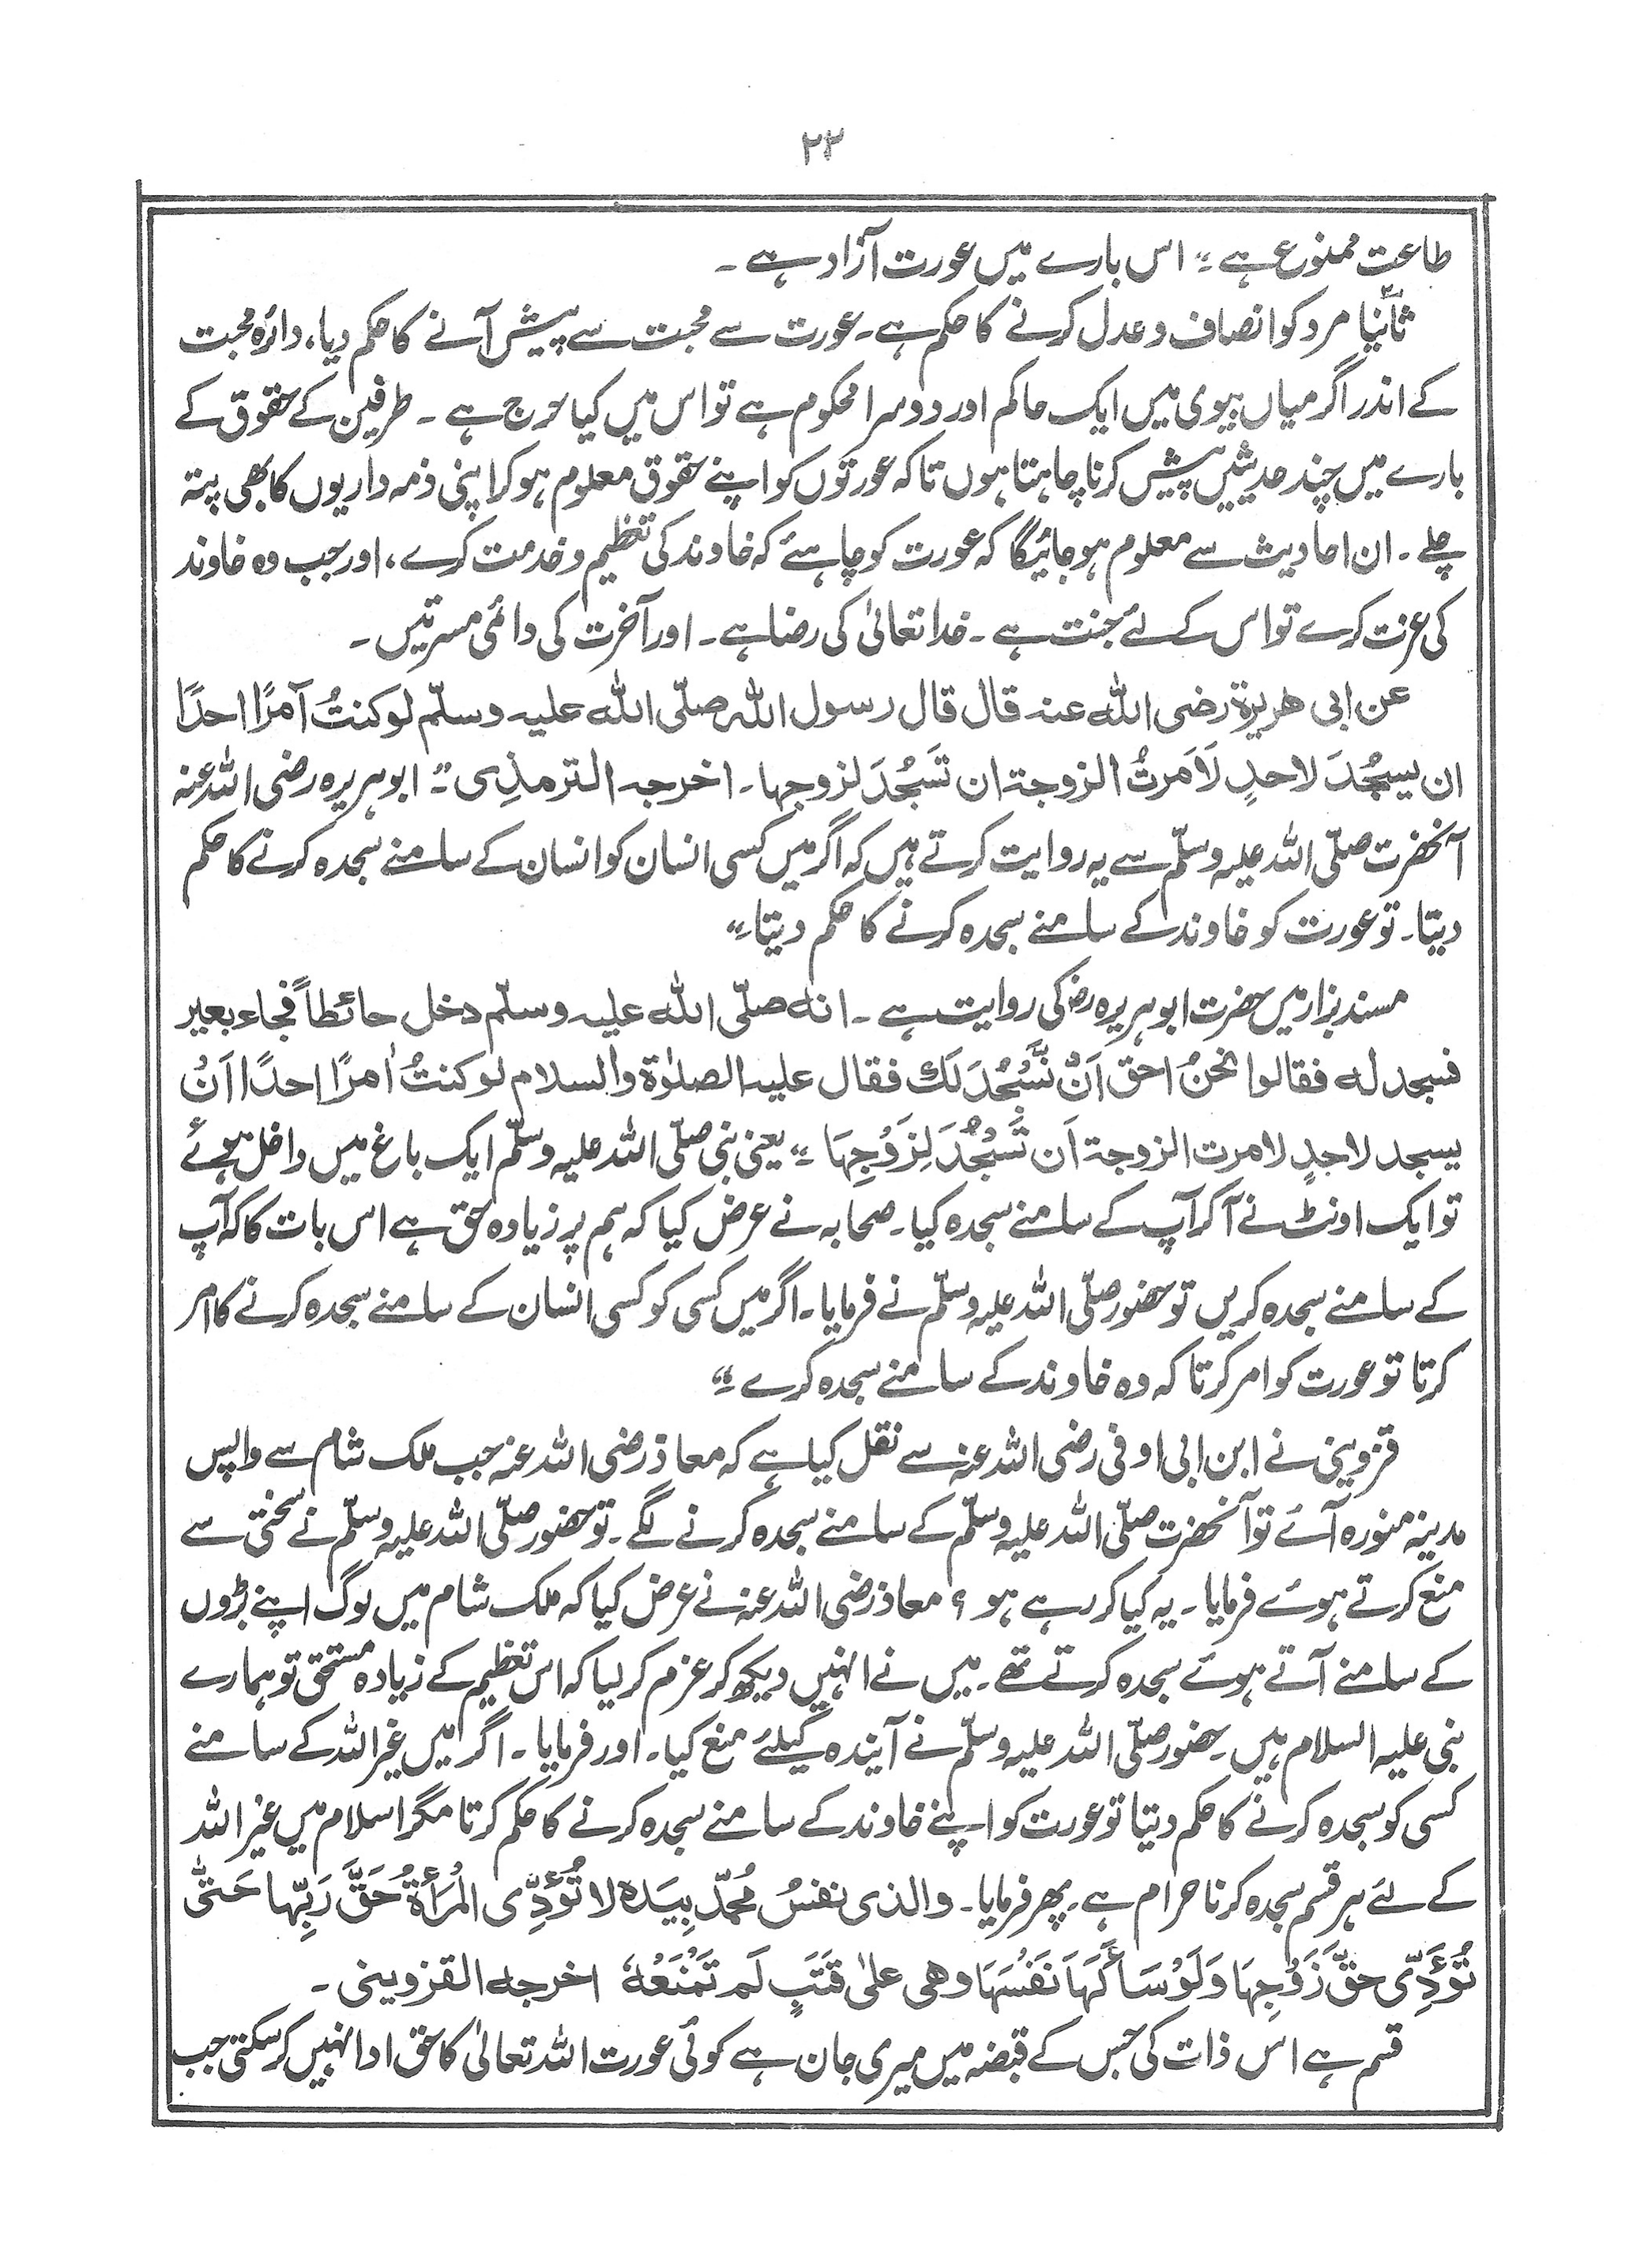 ۲۲
طاعت ممنوع ہے ؛؛ اس بارے میں عورت آزاد ہے ۔
ثانیًا مرد کو انصاف و عدل کرنے کا حکم ہے ۔ عورت سے محبت سے پیش آنے کا حکم دیا، دائرہ محبت
کے اندر اگر میاں بیوی میں ایک حاکم اور دوسرا محکوم ہے تو اس میں کیا حرج ہے ۔ طرفین کے حقوق کے
بارے میں چند حدیثیں پیش کرنا چاہتا ہوں تاکہ عورتوں کو اپنے حقوق معلوم ہو کر اپنی ذمہ داریوں کا بھی پتہ
چلے ۔ ان احادیث سے معلوم ہو جائیگا کہ عورت کو چاہئے کہ خاوند کی تعظیم و خدمت کرے ، اور جب وہ خاوند
کی عزت کرے تو اس کے لئے جنت ہے ۔ خدا تعالیٰ کی رضا ہے ۔ اور آخرت کی دائمی مسرتیں ۔
عن ابی ھریرۃ رضی اللہ عنہ قال قال رسول اللہ صلّی اللہ علیہ وسلّم لو کنتُ آمرًا احدًا
ان یسجُدَ لاحدٍ لَاَمَرتُ الزوجۃ ان تَسجُدَ لزوجہا ۔ اخرجہ الترمذِی ؛؛ ابوہریرہ رضی اللہ عنہ
آنحضرت صلّی اللہ علیہ وسلّم سے یہ روایت کرتے ہیں کہ اگر میں کسی انسان کو انسان کے سامنے سجدہ کرنے کا حکم
دیتا ۔ تو عورت کو خاوند کے سامنے سجدہ کرنے کا حکم دیتا ؛؛
مسند بزار میں حضرت ابوہریرہ رض کی روایت ہے ۔ انہ صلّی اللہ علیہ وسلّم دخل حائطاً فجاء بعیر
فسجد لہ فقالوا نحنُ احق اَنْ نَّسْجُدَ لَكَ فقال علیہ الصلوٰۃ والسلام لو کنتُ اٰمرًا احدًا اَنْ
یسجد لاحدٍ لامرت الزوجۃ اَن تَسْجُدَ لِزَوْجِہَا ؛؛ یعنی نبی صلّی اللہ علیہ وسلّم ایک باغ میں داخل ہوئے
تو ایک اونٹ نے آکر آپ کے سامنے سجدہ کیا ۔ صحابہ نے عرض کیا کہ ہم پر زیادہ حق ہے اس بات کا کہ آپ
کے سامنے سجدہ کریں تو حضور صلّی اللہ علیہ وسلّم نے فرمایا ۔ اگر میں کسی کو کسی انسان کے سامنے سجدہ کرنے کا امر
کرتا تو عورت کو امر کرتا کہ وہ خاوند کے سامنے سجدہ کرے ؛؛
قزوینی نے ابن ابی اوفی رضی اللہ عنہ سے نقل کیا ہے کہ معاذ رضی اللہ عنہ جب ملک شام سے واپس
مدینہ منورہ آئے تو آنحضرت صلّی اللہ علیہ وسلّم کے سامنے سجدہ کرنے لگے ۔ تو حضور صلّی اللہ علیہ وسلّم نے سختی سے
منع کرتے ہوئے فرمایا ۔ یہ کیا کر رہے ہو ؟ معاذ رضی اللہ عنہ نے عرض کیا کہ ملک شام میں لوگ اپنے بڑوں
کے سامنے آتے ہوئے سجدہ کرتے تھے ۔ میں نے انہیں دیکھ کر عزم کر لیا کہ اس تعظیم کے زیادہ مستحق تو ہمارے
نبی علیہ السلام ہیں ۔ حضور صلّی اللہ علیہ وسلّم نے آیندہ کیلئے منع کیا ۔ اور فرمایا ۔ اگر میں غیر اللہ کے سامنے
کسی کو سجدہ کرنے کا حکم دیتا تو عورت کو اپنے خاوند کے سامنے سجدہ کرنے کا حکم کرتا مگر اسلام میں غیر اللہ
کے لئے ہر قسم سجدہ کرنا حرام ہے ۔ پھر فرمایا ۔ والذی نفسُ مُحمّد بِیَدہ لا تُؤَدِّی الْمَرْأَۃُ حَقَّ رَبِّہا حَتّٰی
تُؤَدِّی حقَّ زَوْجِہَا وَلَوْ سَأَلَہَا نَفْسَہَا وھی علیٰ قَتَبٍ لَم تَمْنَعْہُ اخرجہ القزوینی ۔
قسم ہے اس ذات کی جس کے قبضہ میں میری جان ہے کوئی عورت اللہ تعالیٰ کا حق ادا نہیں کر سکتی جب